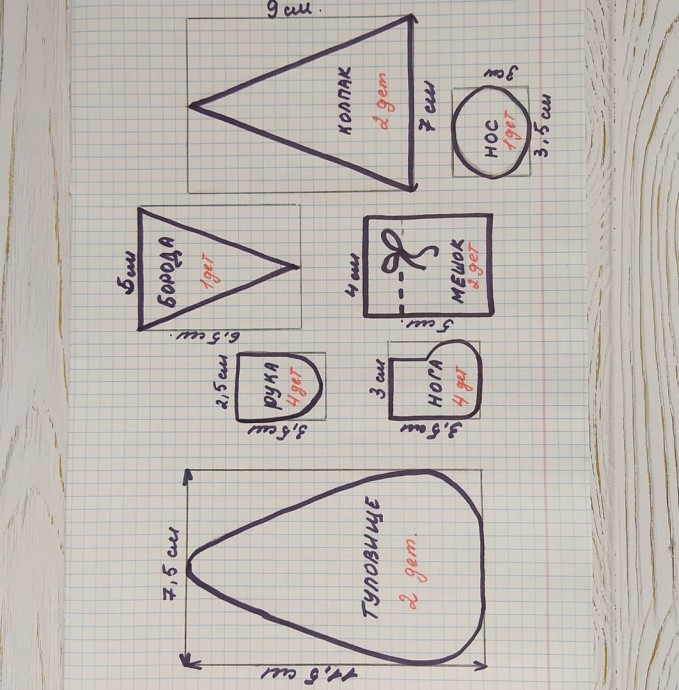 9 см.
КОЛПАК
2 дет
7 см
3 см
НОС
1 дет
3,5 см
5 см
БОРОДА
1 дет
6,5 см.
4 см
МЕШОК
2 дет
5 см.
2,5 см
РУКА
4 дет
3,5 см
3 см
НОГА
4 дет
3,5 см
7,5 см
ТУЛОВИЩЕ
2 дет.
11,5 см